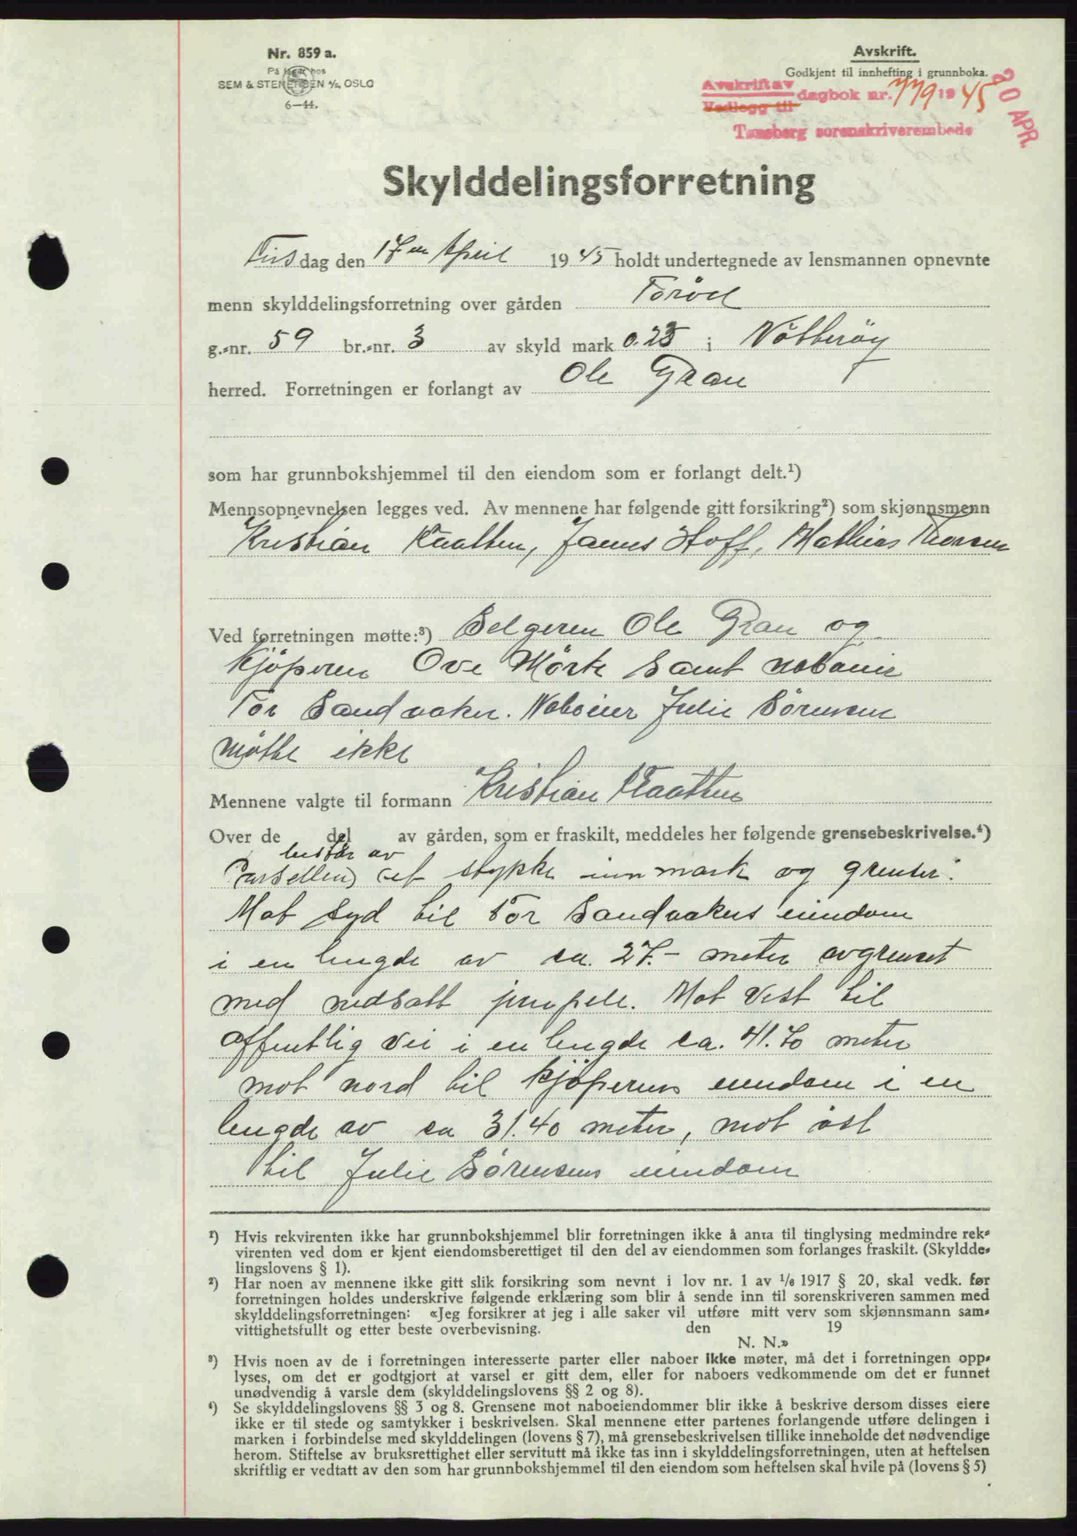 Nr. 859 a.
På lager hos
SEM & STENERSEN A/S, OSLO
6-44.
Avskrift.
Godkjent til innhefting i grunnboka.
Avskrift av
Vedlegg til
dagbok nr. 779 1945
Tønsberg sorenskriverembede
20 APR.
Skylddelingsforretning
Tirsdag den 17en April 1945 holdt undertegnede av lensmannen opnevnte
menn skylddelingsforretning over gården Torød
g.-nr. 59 br.-nr. 3 av skyld mark 0.25 i Nötteröy
herred. Forretningen er forlangt av Ole Gran
som har grunnbokshjemmel til den eiendom som er forlangt delt.¹)
Mennsopnevnelsen legges ved. Av mennene har følgende gitt forsikring²) som skjønnsmenn
Kristian Kaatten, James Hoff, Mathias Thorsen
Ved forretningen møtte:³) Selgeren Ole Gran og
Kjöperen Ove Mörk samt naboeier
Tor Sandvaker. Naboeier Julie Sörensen
mötte ikke
Mennene valgte til formann Kristian Kaatten
Over de del av gården, som er fraskilt, meddeles her følgende grensebeskrivelse.⁴)
består av
Parsellen et stykke innmark og grenser:
Mot Syd til Tor Sandvakers eiendom
i en lengde av ca. 27.- meter avgrenset
med nedsatt jernpele. Mot Vest til
offentlig vei i en lengde ca. 41.70 meter
mot nord til kjöperens eiendom i en
lengde av ca 31.40 meter, mot öst
til Julie Sörensens eiendom
¹) Hvis rekvirenten ikke har grunnbokshjemmel blir forretningen ikke å anta til tinglysing medmindre rek-
virenten ved dom er kjent eiendomsberettiget til den del av eiendommen som forlanges fraskilt. (Skyldde-
lingslovens § 1).
²) Har noen av mennene ikke gitt slik forsikring som nevnt i lov nr. 1 av 1/6 1917 § 20, skal vedk. før
forretningen holdes underskrive følgende erklæring som blir å sende inn til sorenskriveren sammen med
skylddelingsforretningen: «Jeg forsikrer at jeg i alle saker vil utføre mitt verv som skjønnsmann sam-
vittighetsfullt og etter beste overbevisning. den 19
N. N.»
³) Hvis noen av de i forretningen interesserte parter eller naboer ikke møter, må det i forretningen opp-
lyses, om det er godtgjort at varsel er gitt dem, eller for naboers vedkommende om det er funnet
unødvendig å varsle dem (skylddelingslovens §§ 2 og 8).
⁴) Se skylddelingslovens §§ 3 og 8. Grensene mot naboeiendommer blir ikke å beskrive dersom disses eiere
ikke er til stede og samtykker i beskrivelsen. Skal mennene etter partenes forlangende utføre delingen i
marken i forbindelse med skylddelingen (lovens § 7), må grensebeskrivelsen tillike inneholde det nødvendige
herom. Stiftelse av bruksrettighet eller servitutt må ikke tas inn i skylddelingsforretningen, uten at heftelsen
skriftlig er vedtatt av den som har grunnbokshjemmel til den eiendom som heftelsen skal hvile på (lovens § 5)